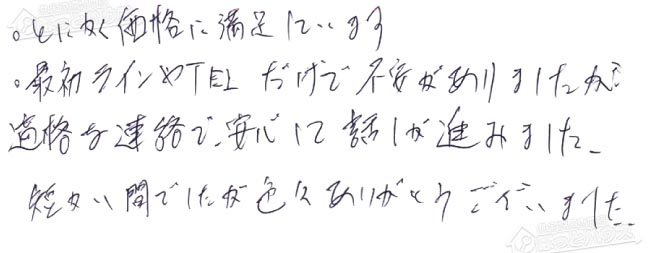 。とにかく価格に満足しています
・最初ラインやTELだけで不安がありましたが
適格な連絡で、安心して話しが進みました。
短かい間でしたが色々ありがとうございました。